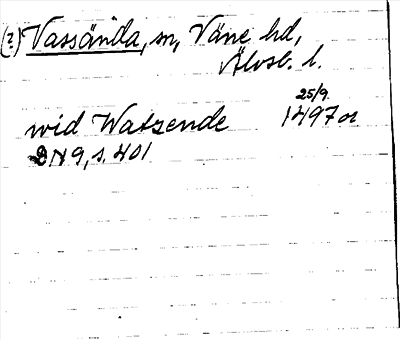 (?) Vassända, sn, Väne hd,
Älvsb. l.
25/9
wid Watzende 1497 or
DN 9, s. 401